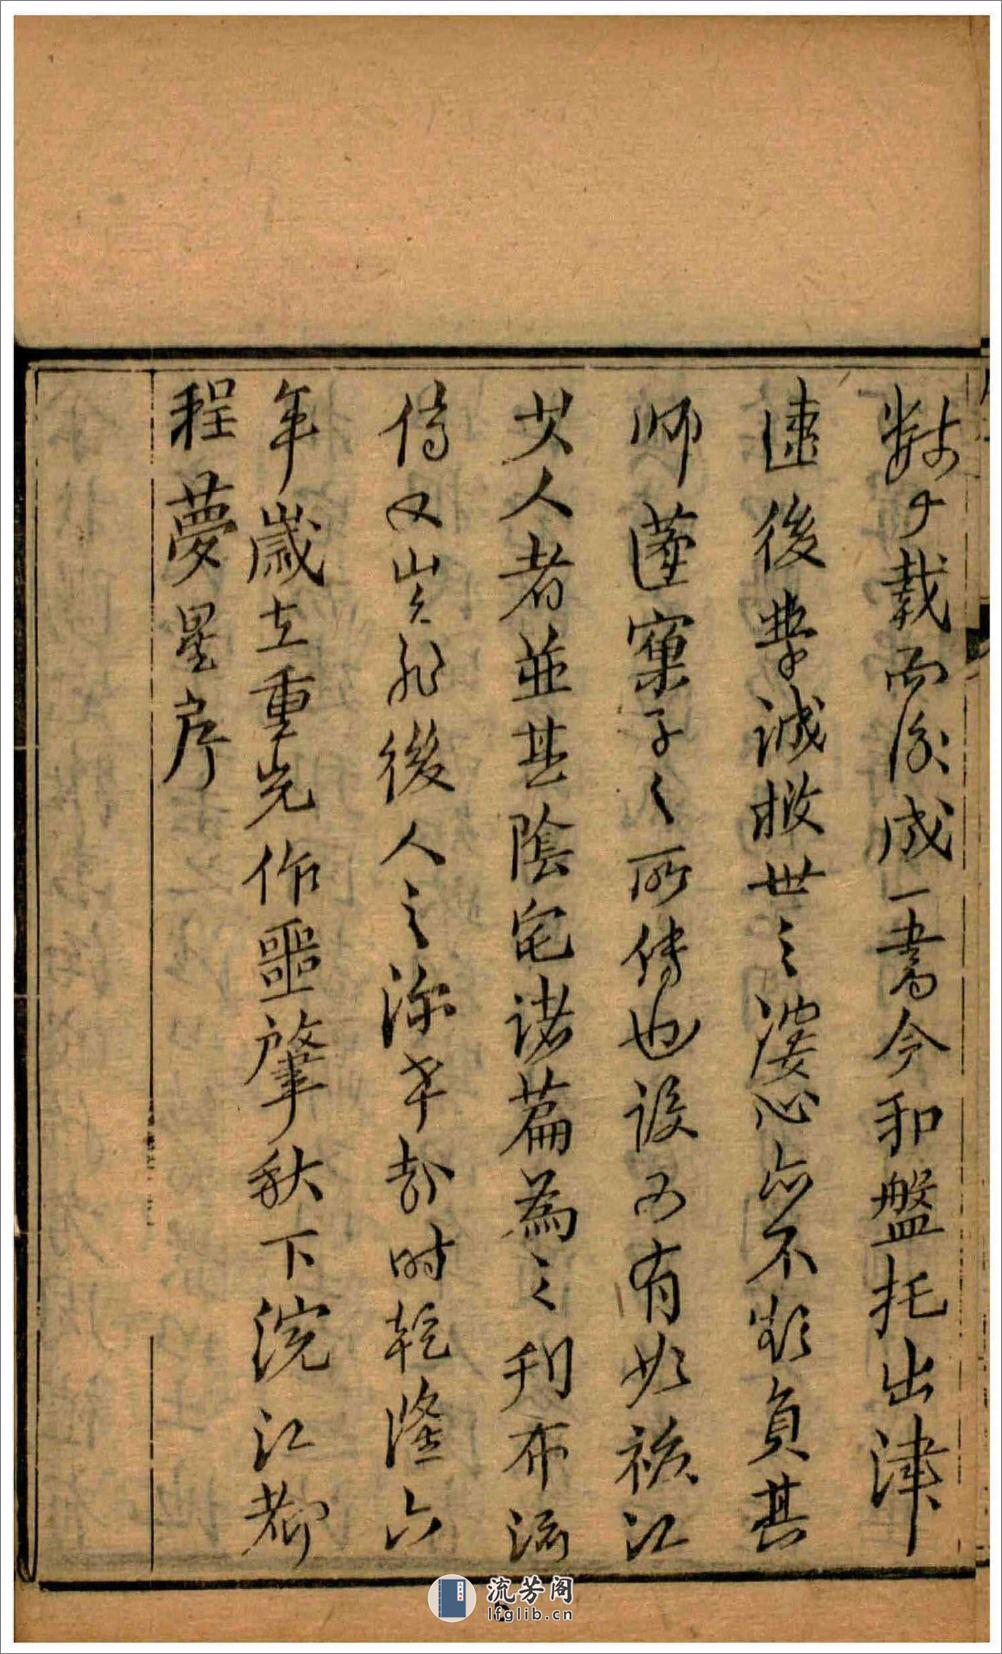 數十載而後成一書今和盤托出津
逮後學誠救世之婆心亦不欲負其
師蘧窠子之所傳也設又有如嵇江
其人者並其陰宅諸篇為之刊布流
傳又豈非後人之深幸哉時乾隆六
年歲在重光作噩肇秋下浣江都
程夢星序
流芳阁
lfglib.cn